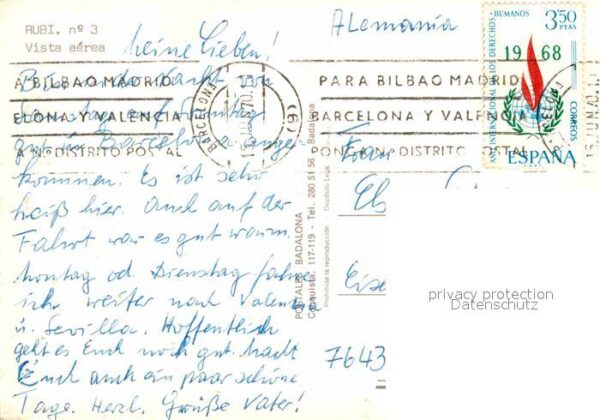 RUBI. nº 3
Vista aérea
Alemania
meine Lieben!
Bin in der Nacht von
Samstag auf Sonntag
gut in Barcelona ange-
kommen. Es ist sehr
heiß hier. Auch auf der
Fahrt war es gut warm.
Montag od. Dienstag fahre
ich weiter nach Valencia
u. Sevilla. Hoffentlich
geht es Euch noch gut. Macht
Euch auch ein paar schöne
Tage. Herzl. Grüße Vater!
A BILBAO MADRID
ELONA Y VALENCIA
A Nº DISTRITO POSTAL
BARCELONA
(6)
PARA BILBAO MADRID
BARCELONA Y VALENC
PONGAN Nº DISTRITO POSTAL
AÑO INTERNACIONAL DE LOS DERECHOS HUMANOS
3'50
PTAS
1968
CORREOS
ESPAÑA
POSTALES BADALONA
Conquista, 117-119 - Tel. 280 51 56 - Badalona
Prohibida la reproducción
Depósito Legal
Frau
El
Eise
7643
privacy protection
Datenschutz